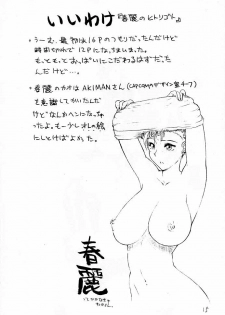 いいわけ『春麗のヒトリゴト』
・うーむ、最初は16Pのつもりだったんだけど
時間切れで12Pになっちまいました。
もっともっとおっぱいにこだわるはずだった
んだけど。
・春麗のカオはAKIMANさん(CAPCOMのデザイン室チーフ)
を意識してかいたんだけ
どなんかヘンになっちゃ
ったよ。もー少しオレの絵
にしとけばよかた。
春麗
15